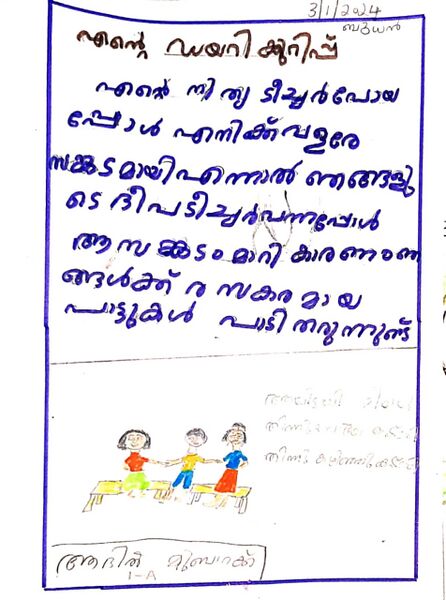 3/1/2024
ബുധൻ
എന്റെ ഡയറിക്കുറിപ്പ്
എന്റെ നിത്യ ടീച്ചർപോയ
പ്പോൾ എനിക്ക് വളരേ
സങ്കടമായി എന്നാൽ ഞങ്ങളു
ടെ ദീപടീച്ചർവന്നപ്പോൾ
ആ സങ്കടം മാറി കാരണം ഞ
ങ്ങൾക്ക് രസകരമായ
പാട്ടുകൾ പാടി തരുന്നുണ്ട്
ആദിത് മുബാറക്ക്
I-A